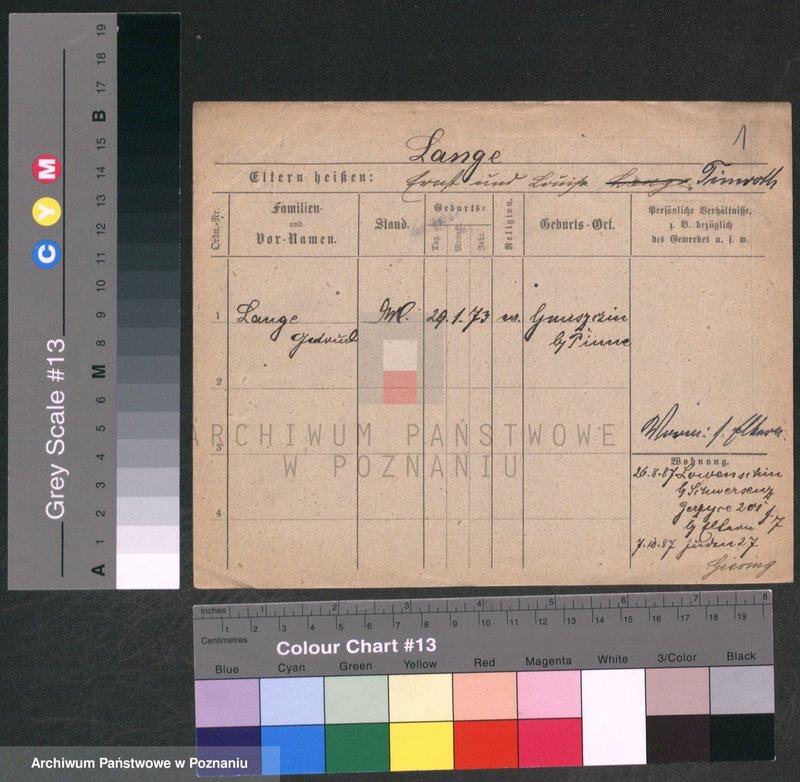 1
Lange
Eltern heißen: Ernst und Louise Lange Timroth
Ordn.-Nr.
Familien- und Vor-Namen.
Stand.
Geburts-
Tag. Monat. Jahr.
Religion.
Geburts-Ort.
Persönliche Verhältnisse, z. B. bezüglich des Gewerbes u. s. w.
1 Lange Md. 29. 1. 73 ev.
Gertrud by Pinne
2
3
4
Wohnung.
26.8.87
by Schwersenz
Jerzyce 201
by Eltern
7.10.87 Juden 27
ARCHIWUM PAŃSTWOWE
W POZNANIU
Grey Scale #13
C Y M
A 1 2 3 4 5 6 M 8 9 10 11 12 13 14 15 B 17 18 19
Inches 1 2 3 4 5 6 7 8
Centimetres 1 2 3 4 5 6 7 8 9 10 11 12 13 14 15 16 17 18 19
Colour Chart #13
Blue Cyan Green Yellow Red Magenta White 3/Color Black
Archiwum Państwowe w Poznaniu